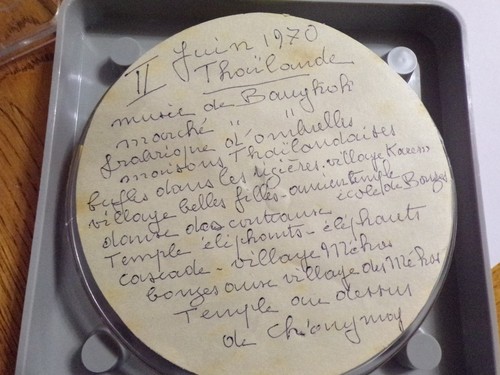 II Juin 1970
Thaïlande
musée de Bangkok
marché " "
fabrique d'ombrelles
maisons Thaïlandaises
buffles dans les rizières. village Karens
village belles filles. ancien temple
danse des couteaux école de Bonzes
Temple éléphants - éléphants
cascade - village Méhos
bonzes aux village des Méhos
Temple au dessus
de Chiangmay